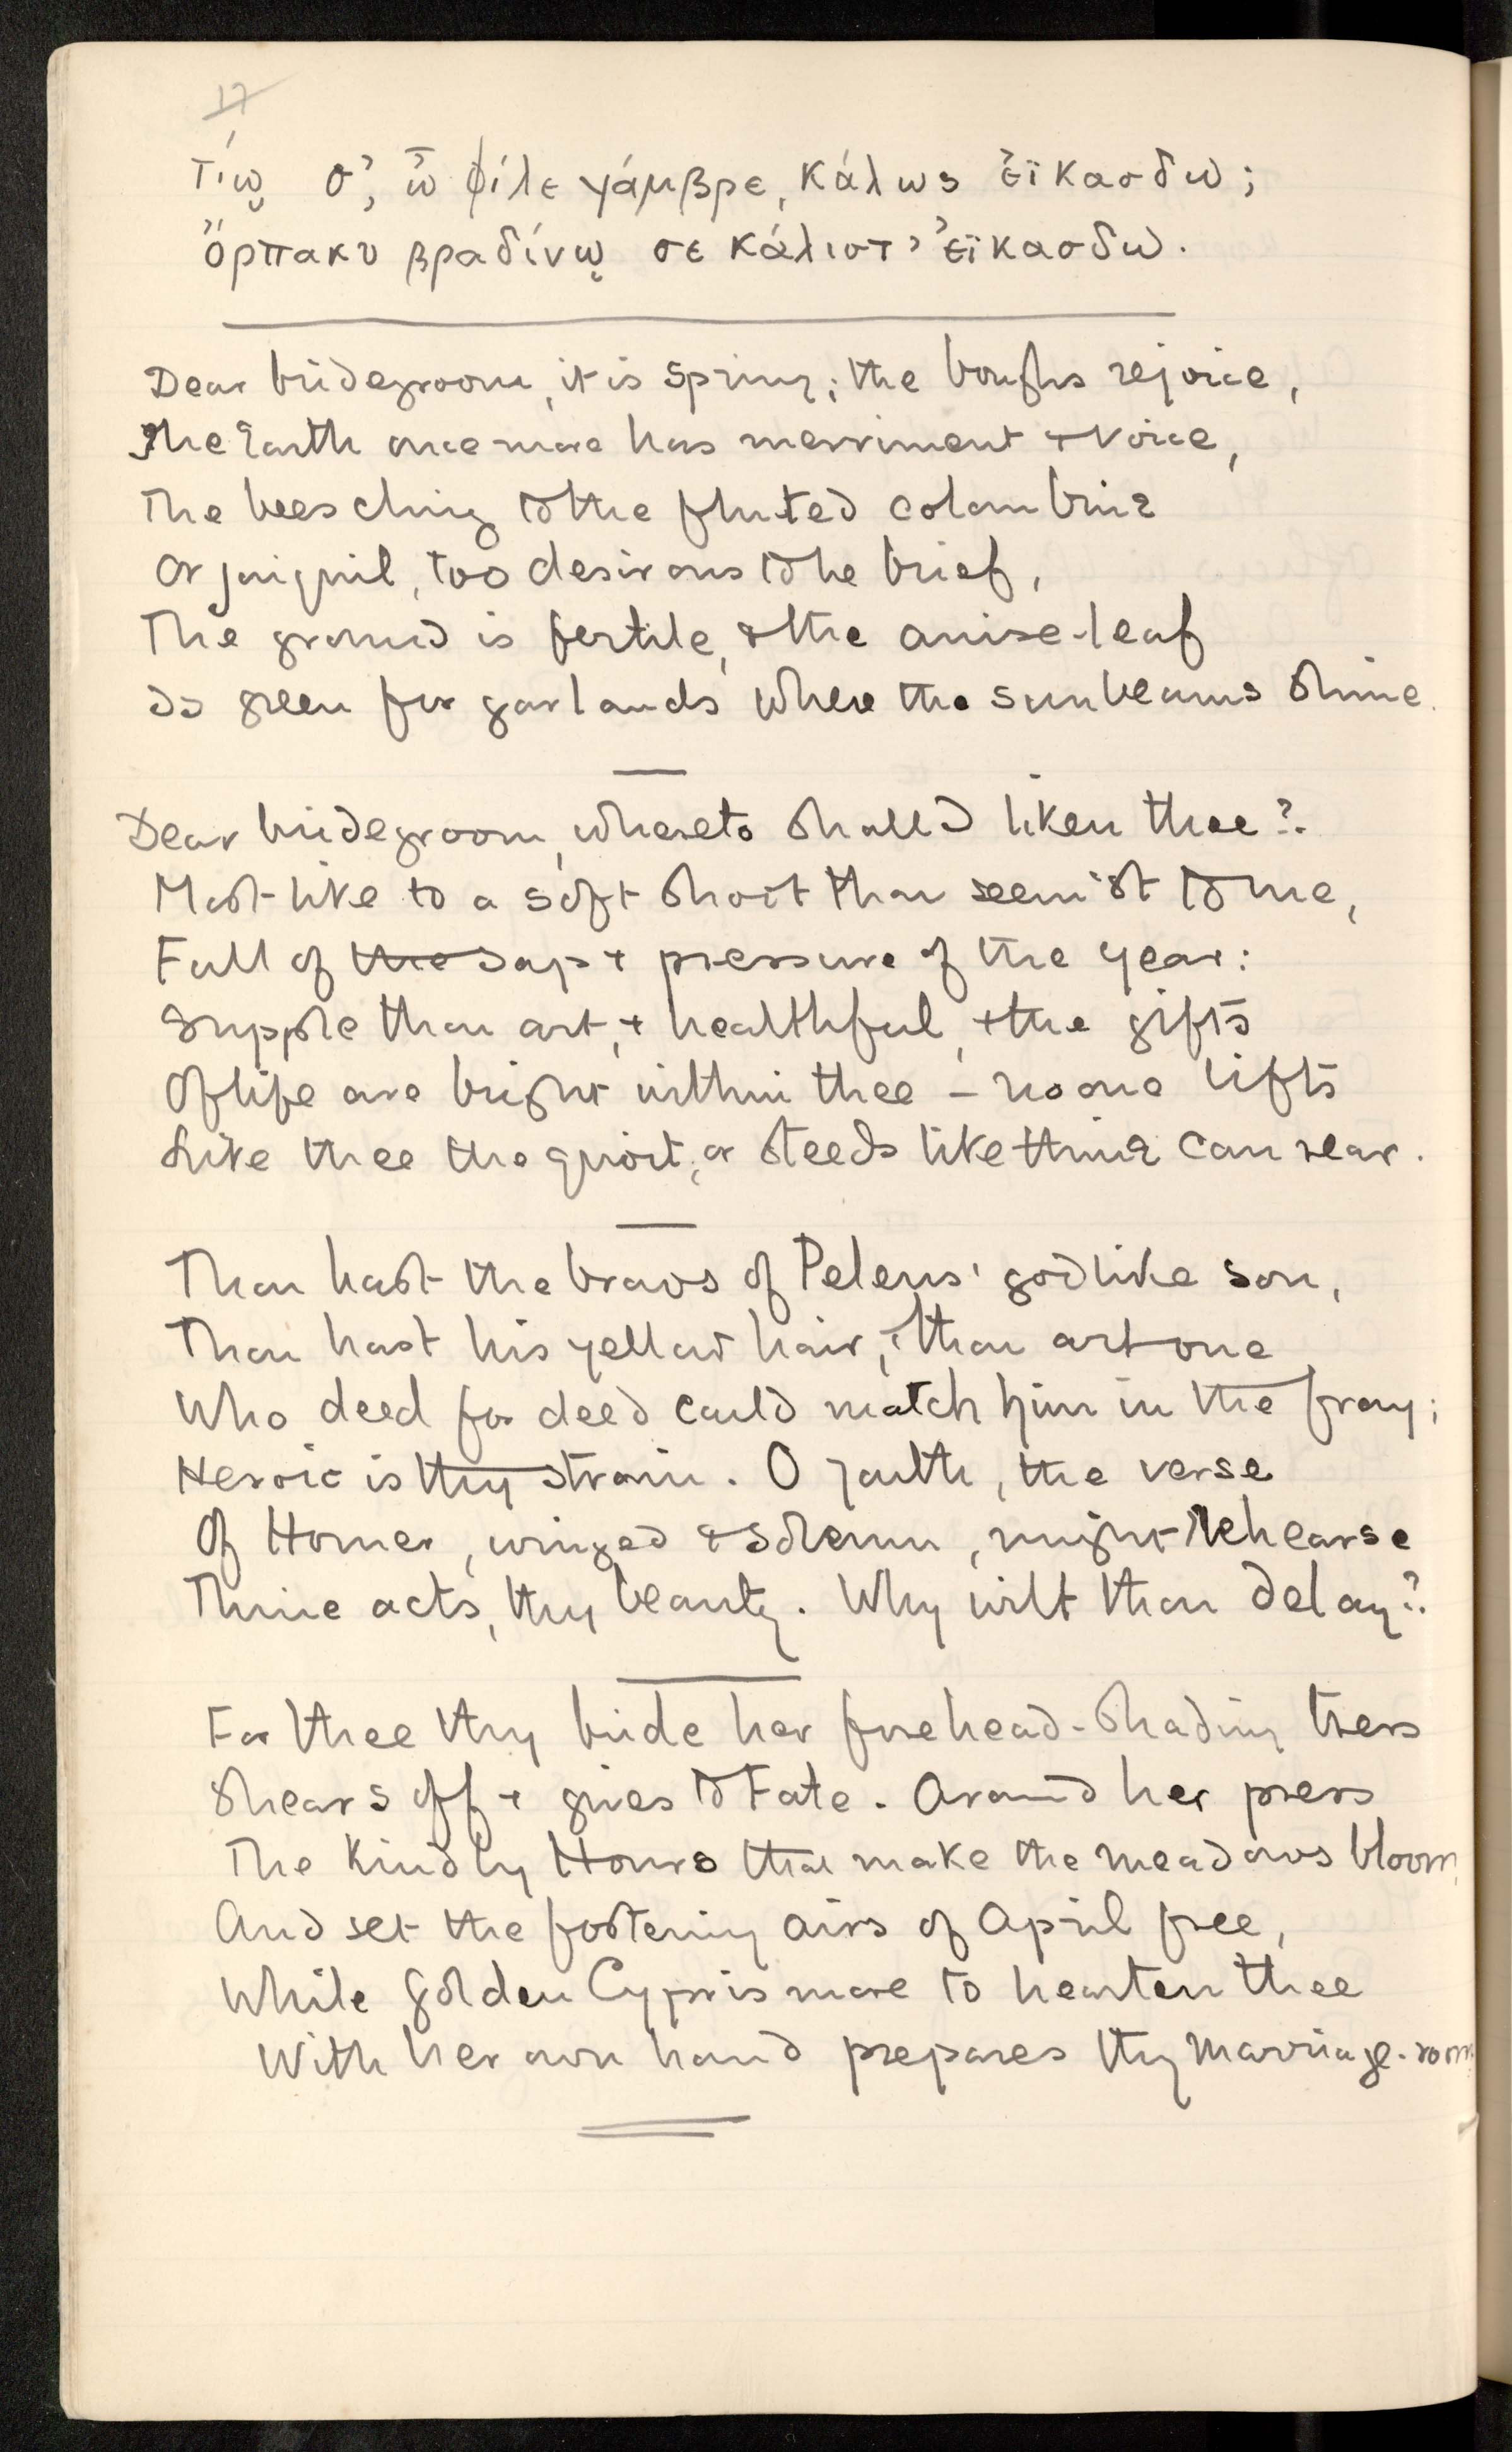 17
Τίῳ σ', ὦ φίλε γάμβρε, κάλως ἐϊκασδω;
ὄρπακι βραδίνῳ σε κάλιστ' ἐϊκασδω.
Dear bridegroom, it is spring; the boughs rejoice,
The Earth once more has merriment + voice,
The bees cling to the fluted columbine
Or jonquil, too desirous to be brief,
The ground is fertile, & the anise-leaf
Is green for garlands where the sunbeams shine.
Dear bridegroom, whereto shall I liken thee?
Most like to a soft shoot thou seem'st to me,
Full of the sap + pressure of the year:
Supple thou art, + healthful, + the gifts
Of life are bright within thee – no one lifts
Like thee the quoit, or steeds like thine can rear.
Thou hast the brows of Peleus' godlike son,
Thou hast his yellow hair, thou art one
Who deed for deed could match him in the fray;
Heroic is thy strain. O youth, the verse
Of Homer, winged & solemn, might rehearse
Thine acts, thy beauty. Why wilt thou delay?
For thee thy bride her forehead-shading tress
Shears off + gives to Fate. Around her press
The kindly Hours that make the meadows bloom,
And set the fostering airs of April free,
While golden Cypris more to hearten thee
With her own hand prepares thy marriage-room.